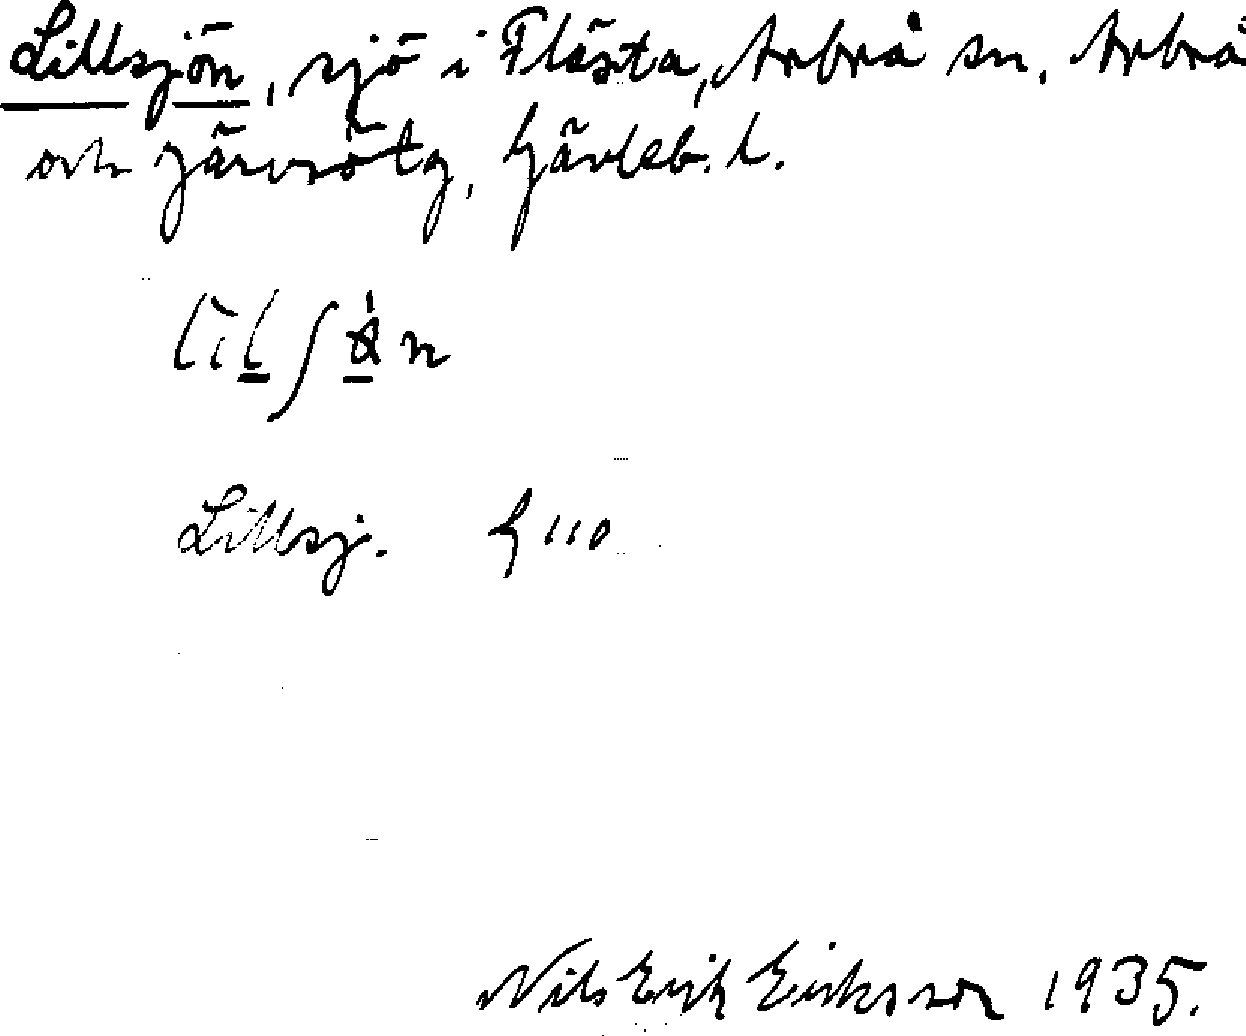 Lillsjön, sjö i Flästa, Arbrå sn, Arbrå
och Järvsö tg, Gävleb. l.
Lillsj. G 110
Nils Erik Eriksson 1935.